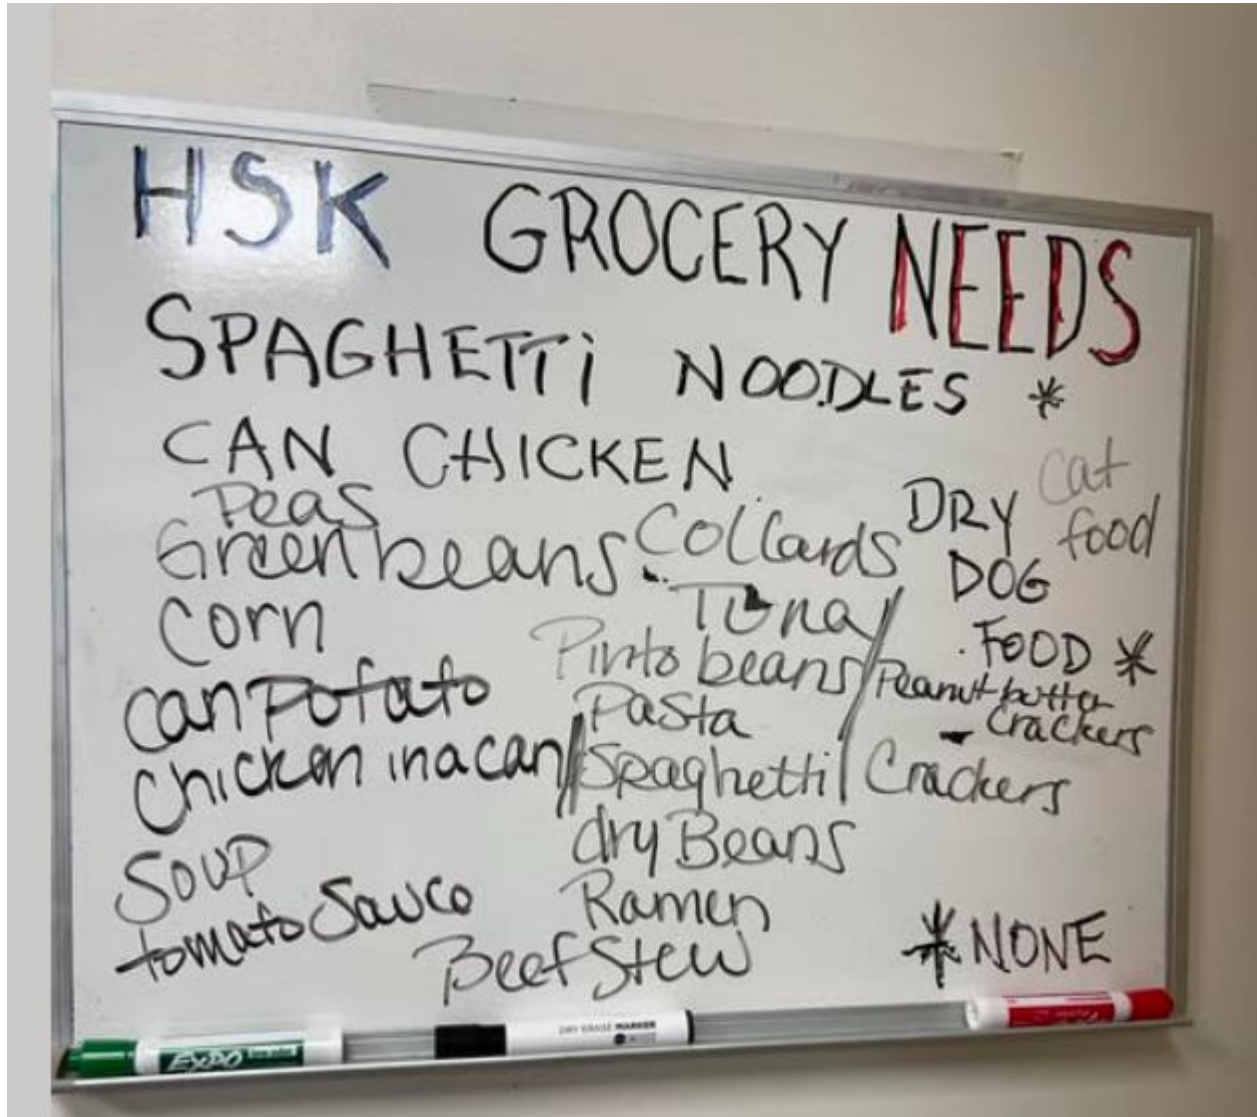 HSK GROCERY NEEDS
SPAGHETTi NOODLES *
CAN CHICKEN
Peas
Green beans
Corn
can potato
Chicken in a can
Soup
tomato Sauce
Beef Stew
Collards
Tuna
Pinto beans
Pasta
Spaghetti
dry Beans
Ramen
DRY
DOG
FOOD *
Cat
food
Peanut butter
crackers
Crackers
* NONE
EXPO
DRY ERASE MARKER